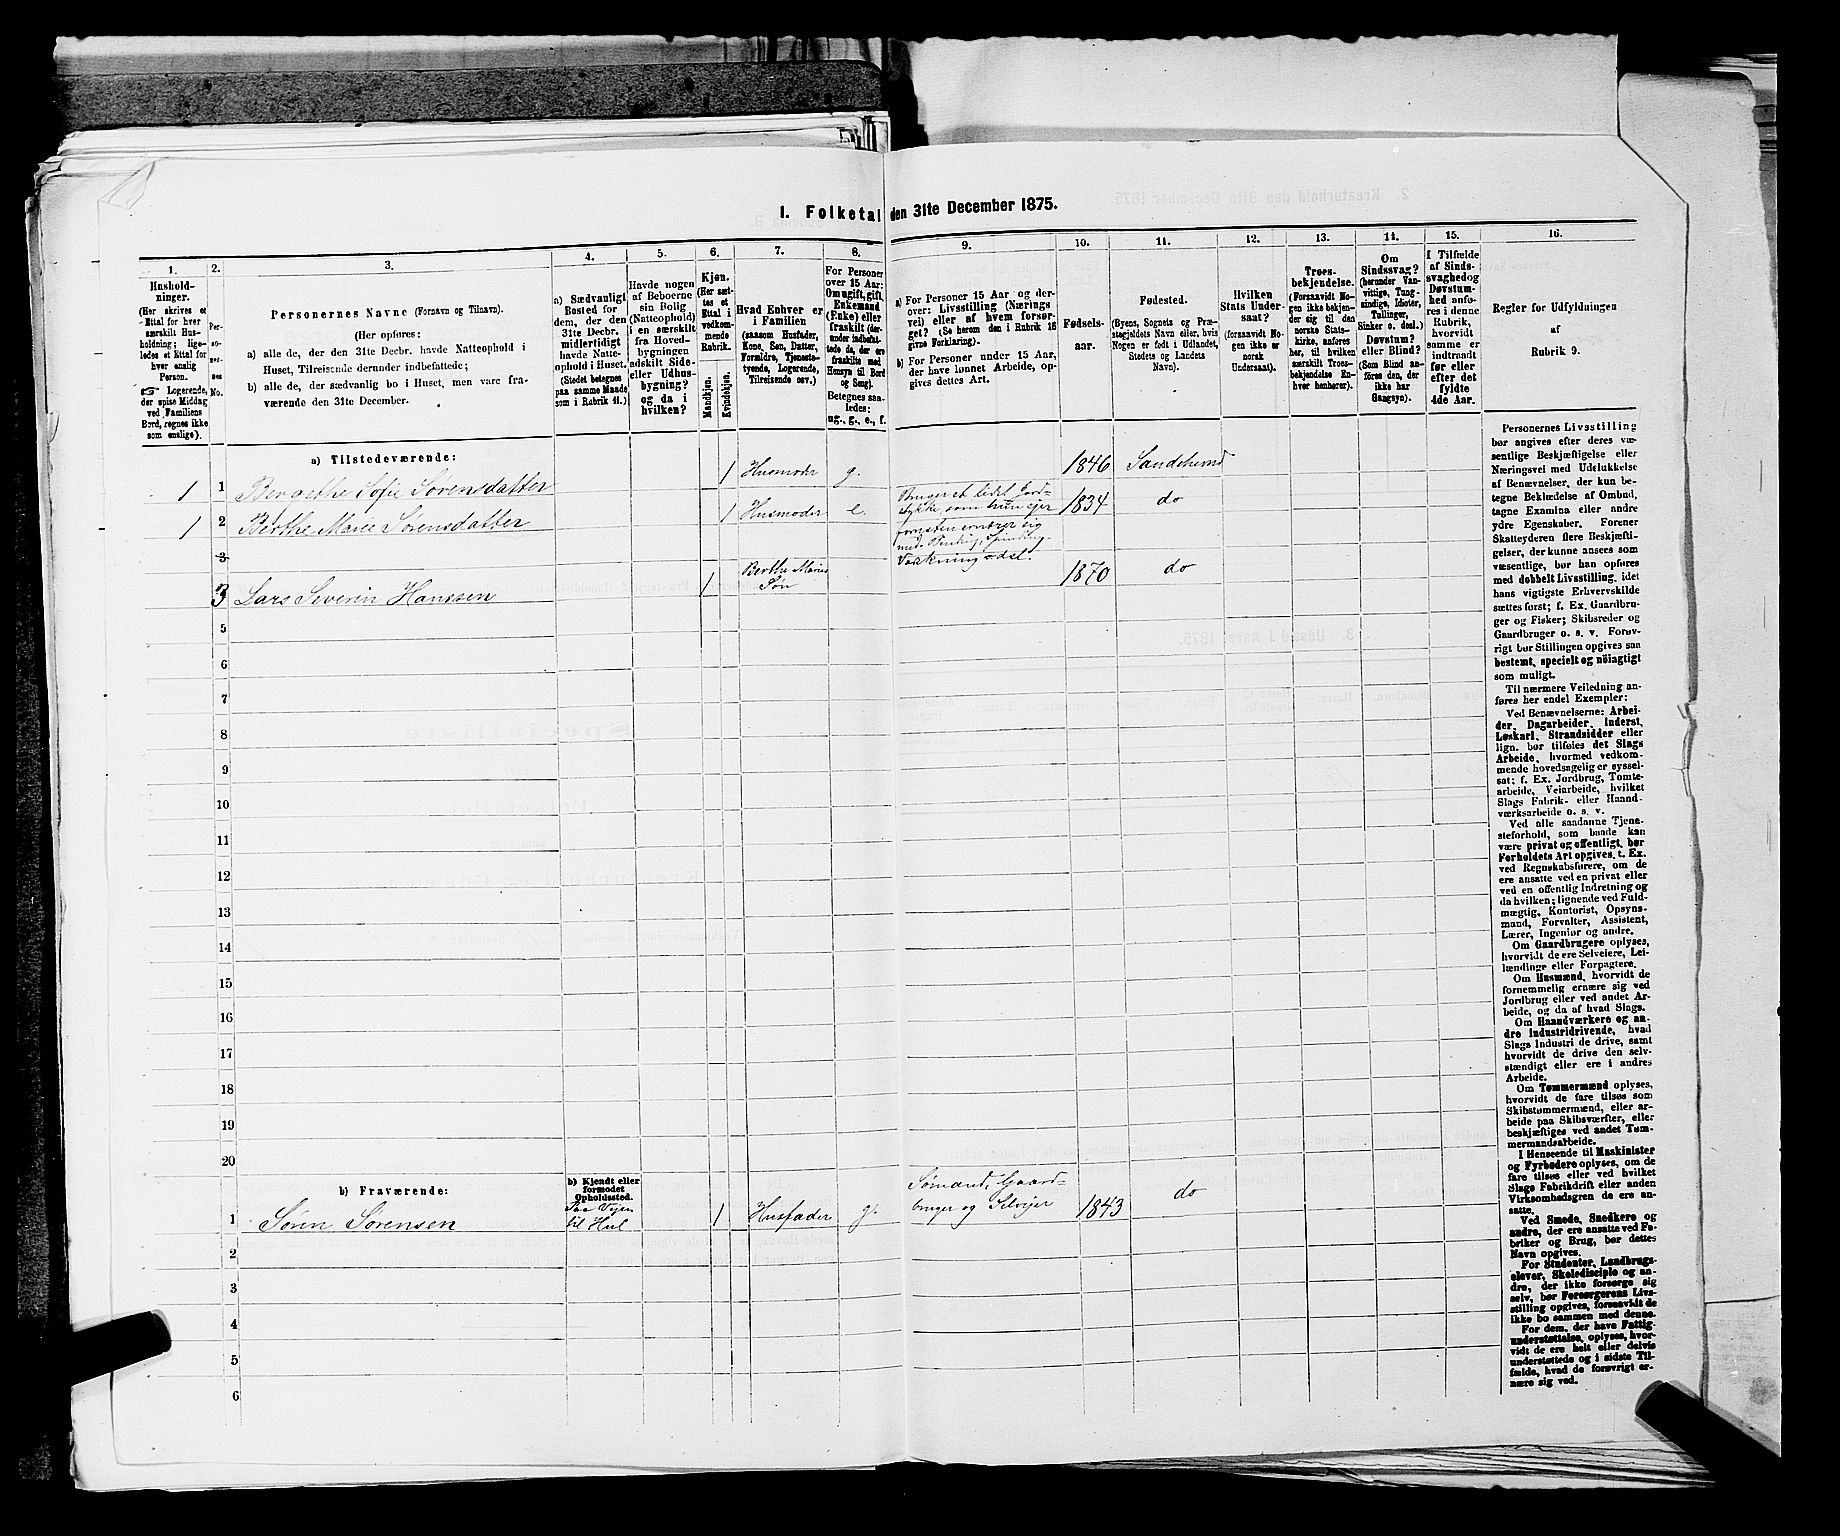 1. Folketal den 31te December 1875.
1.
2.
3.
4.
5.
6.
7.
8.
9.
10.
11.
12.
13.
14.
15.
16.
Hushold-
ninger.
(Her skrives et
Ettal for hver
særskilt Hus-
holdning; lige-
ledes et Ettal for
hver enslig
Person.
☞ Logerende,
der spise Middag
ved Familiens
Bord, regnes ikke
som enslige).
Per-
so-
ner-
nes
No.
Personernes Navne (Fornavn og Tilnavn).
(Her opføres:
a) alle de, der den 31te Decbr. havde Natteophold i
Huset, Tilreisende derunder indbefattede;
b) alle de, der sædvanlig bo i Huset, men vare fra-
værende den 31te December.
a) Sædvanligt
Bosted for
dem, der den
31te Decbr.
midlertidigt
havde Natte-
ophold i Huset.
(Stedet betegnes
paa samme Maade
som i Rubrik 11.)
Havde nogen
af Beboerne
sin Bolig
(Natteophold)
i en særskilt
fra Hoved-
bygningen
adskilt Side-
eller Udhus-
bygning?
og da i
hvilken?
Kjøn.
(Her sæt-
tes et
Ettal i
vedkom-
mende
Rubrik.
Mandkjøn.
Kvindekjøn.
Hvad Enhver er
i Familien
(saasom Husfader,
Kone, Søn, Datter,
Forældre, Tjeneste-
tyende, Logerende,
Tilreisende osv.)
For Personer
over 15 Aar:
Om ugift, gift,
Enkemand
(Enke) eller
fraskilt (der-
under indbefat-
tede da, der ere
fraskilte med
Hensyn til Bord
og Seng).
Betegnes saa-
ledes:
ug., g., e., f.
a) For Personer 15 Aar og der-
over: Livsstilling (Nærings-
vei) eller af hvem forsør-
get? (Se herom den i Rubrik 16
givne Forklaring).
b) For Personer under 15 Aar,
der have lønnet Arbeide, op-
gives dettes Art.
Fødsels-
aar.
Fødested.
(Byens, Sognets og Præ-
stegjældets Navn eller, hvis
Nogen er født i Udlandet,
Stedets og Landets
Navn).
Hvilken
Stats Under-
saat?
(forsaavidt No-
gen ikke er
norsk
Undersaat).
Troes-
bekjendelse.
(Forsaavidt No-
gen ikke bekjen-
der sig til den
norske Stats-
kirke, anføres
her, til hvilken
særskilt Troes-
bekjendelse En-
hver henhører).
Om
Sindssvag?
(herunder Van-
vittige, Tung-
sindige, Idioter,
Tullinger,
Sinker o. desl.)
Døvstum?
eller Blind?
(Som Blind an-
føres den, der
ikke har
Gangsyn).
I Tilfælde
af Sinds-
svaghed og
Døvstum-
hed anfø-
res i denne
Rubrik,
hvorvidt
samme er
indtraadt
før eller
efter det
fyldte
4de Aar.
Regler for Udfyldningen
af
Rubrik 9.
a) Tilstedeværende:
1 1 Bergethe Sofie Sørensdatter 1 Husmoder g. 1846 Sandeherred
1 2 Berthe Marie Sørensdatter 1 Husmoder e. 1834 do
Bruger et lidet Jord-
stykke, som hun ejer
forresten ernærer sig
med
3
3 Lars Severin Hanssen 1 Berthe Maries
Søn 1870 do
5
6
7
8
9
10
11
12
13
14
15
16
17
18
19
20
b) Fraværende:
b) Kjendt eller
formodet
Opholdssted.
1 Søren Sørensen Paa Vejen
til Hul 1 Husfader g. Sømand, Gaard-
bruger og Selvejer 1843 do
2
3
4
5
6
Personernes Livsstilling
bør angives efter deres væ-
sentlige Beskjæftigelse eller
Næringsvei med Udelukkelse
af Benævnelser, der kun be-
tegne Beklædelse af Ombud,
tagne Examina eller andre
ydre Egenskaber. Forener
Skatteyderen flere Beskjæfti-
gelser, der kunne ansees som
væsentlige, bør han opføres
med dobbelt Livsstilling, idet
hans vigtigste Erhvervskilde
sættes først; f. Ex. Gaardbru-
ger og Fisker; Skibsreder og
Gaardbruger o. s. v. Forøv-
rigt bør Stillingen opgives saa
bestemt, specielt og nöiagtigt
som muligt.
Til nærmere Veiledning an-
føres her endel Exempler:
Ved Benævnelserne: Arbei-
der, Dagarbeider, Inderst,
Løskarl, Strandsidder eller
lign. bør tilføies det Slags
Arbeide, hvormed vedkom-
mende hovedsagelig er syssel-
sat; f. Ex. Jordbrug, Tomte-
arbeide, Veiarbeide, hvilket
Slags Fabrik- eller Haand-
værksarbeide o. s. v.
Ved alle saadanne Tjene-
steforhold, som baade kan
være privat og offentligt, bør
Forholdets Art opgives, t. Ex.
ved Regnskabsførere, om de
ere ansatte ved en privat eller
ved en offentlig Indretning og
da hvilken; lignende ved Fuld-
mægtig, Kontorist, Opsyns-
mand, Forvalter, Assistent,
Lærer, Ingeniør og andre.
Om Gaardbrugere oplyses,
hvorvidt de ere Selveiere, Lei-
lændinge eller Forpagtere.
Om Husmænd, hvorvidt de
fornemmelig ernære sig ved
Jordbrug eller ved andet Ar-
beide, og da af hvad Slags.
Om Haandværkere og an-
dre Industridrivende, hvad
Slags Industri de drive, samt
hvorvidt de drive den selv-
stændigt eller ere i andres
Arbeide.
Om Tømmermænd oplyses,
hvorvidt de fare tilsøs som
Skibstømmermænd, eller ar-
beide paa Skibsværfter, eller
beskjæftiges ved andet Tøm-
mermandsarbeide.
I Henseende til Maskinister
og Fyrbødere oplyses, om de
fare tilsøs eller ved hvilket
Slags Fabrikdrift eller anden
Virksomhedsgren de ere an-
satte.
Ved Smede, Snedkere og
andre, der ere ansatte ved Fa-
briker og Brug, bør dettes
Navn opgives.
For Studenter, Landbrugs-
elever, Skoledisciple og an-
dre, der ikke forsørge sig
selv, bør Forsørgerens Livs-
stilling opgives, forsaavidt de
ikke bo sammen med denne.
For dem, der have Fattig-
understøttelse, oplyses, hvor-
vidt de ere helt eller delvis
understøttede og i sidste Til-
fælde, hvad de forøvrigt er-
nære sig ved.